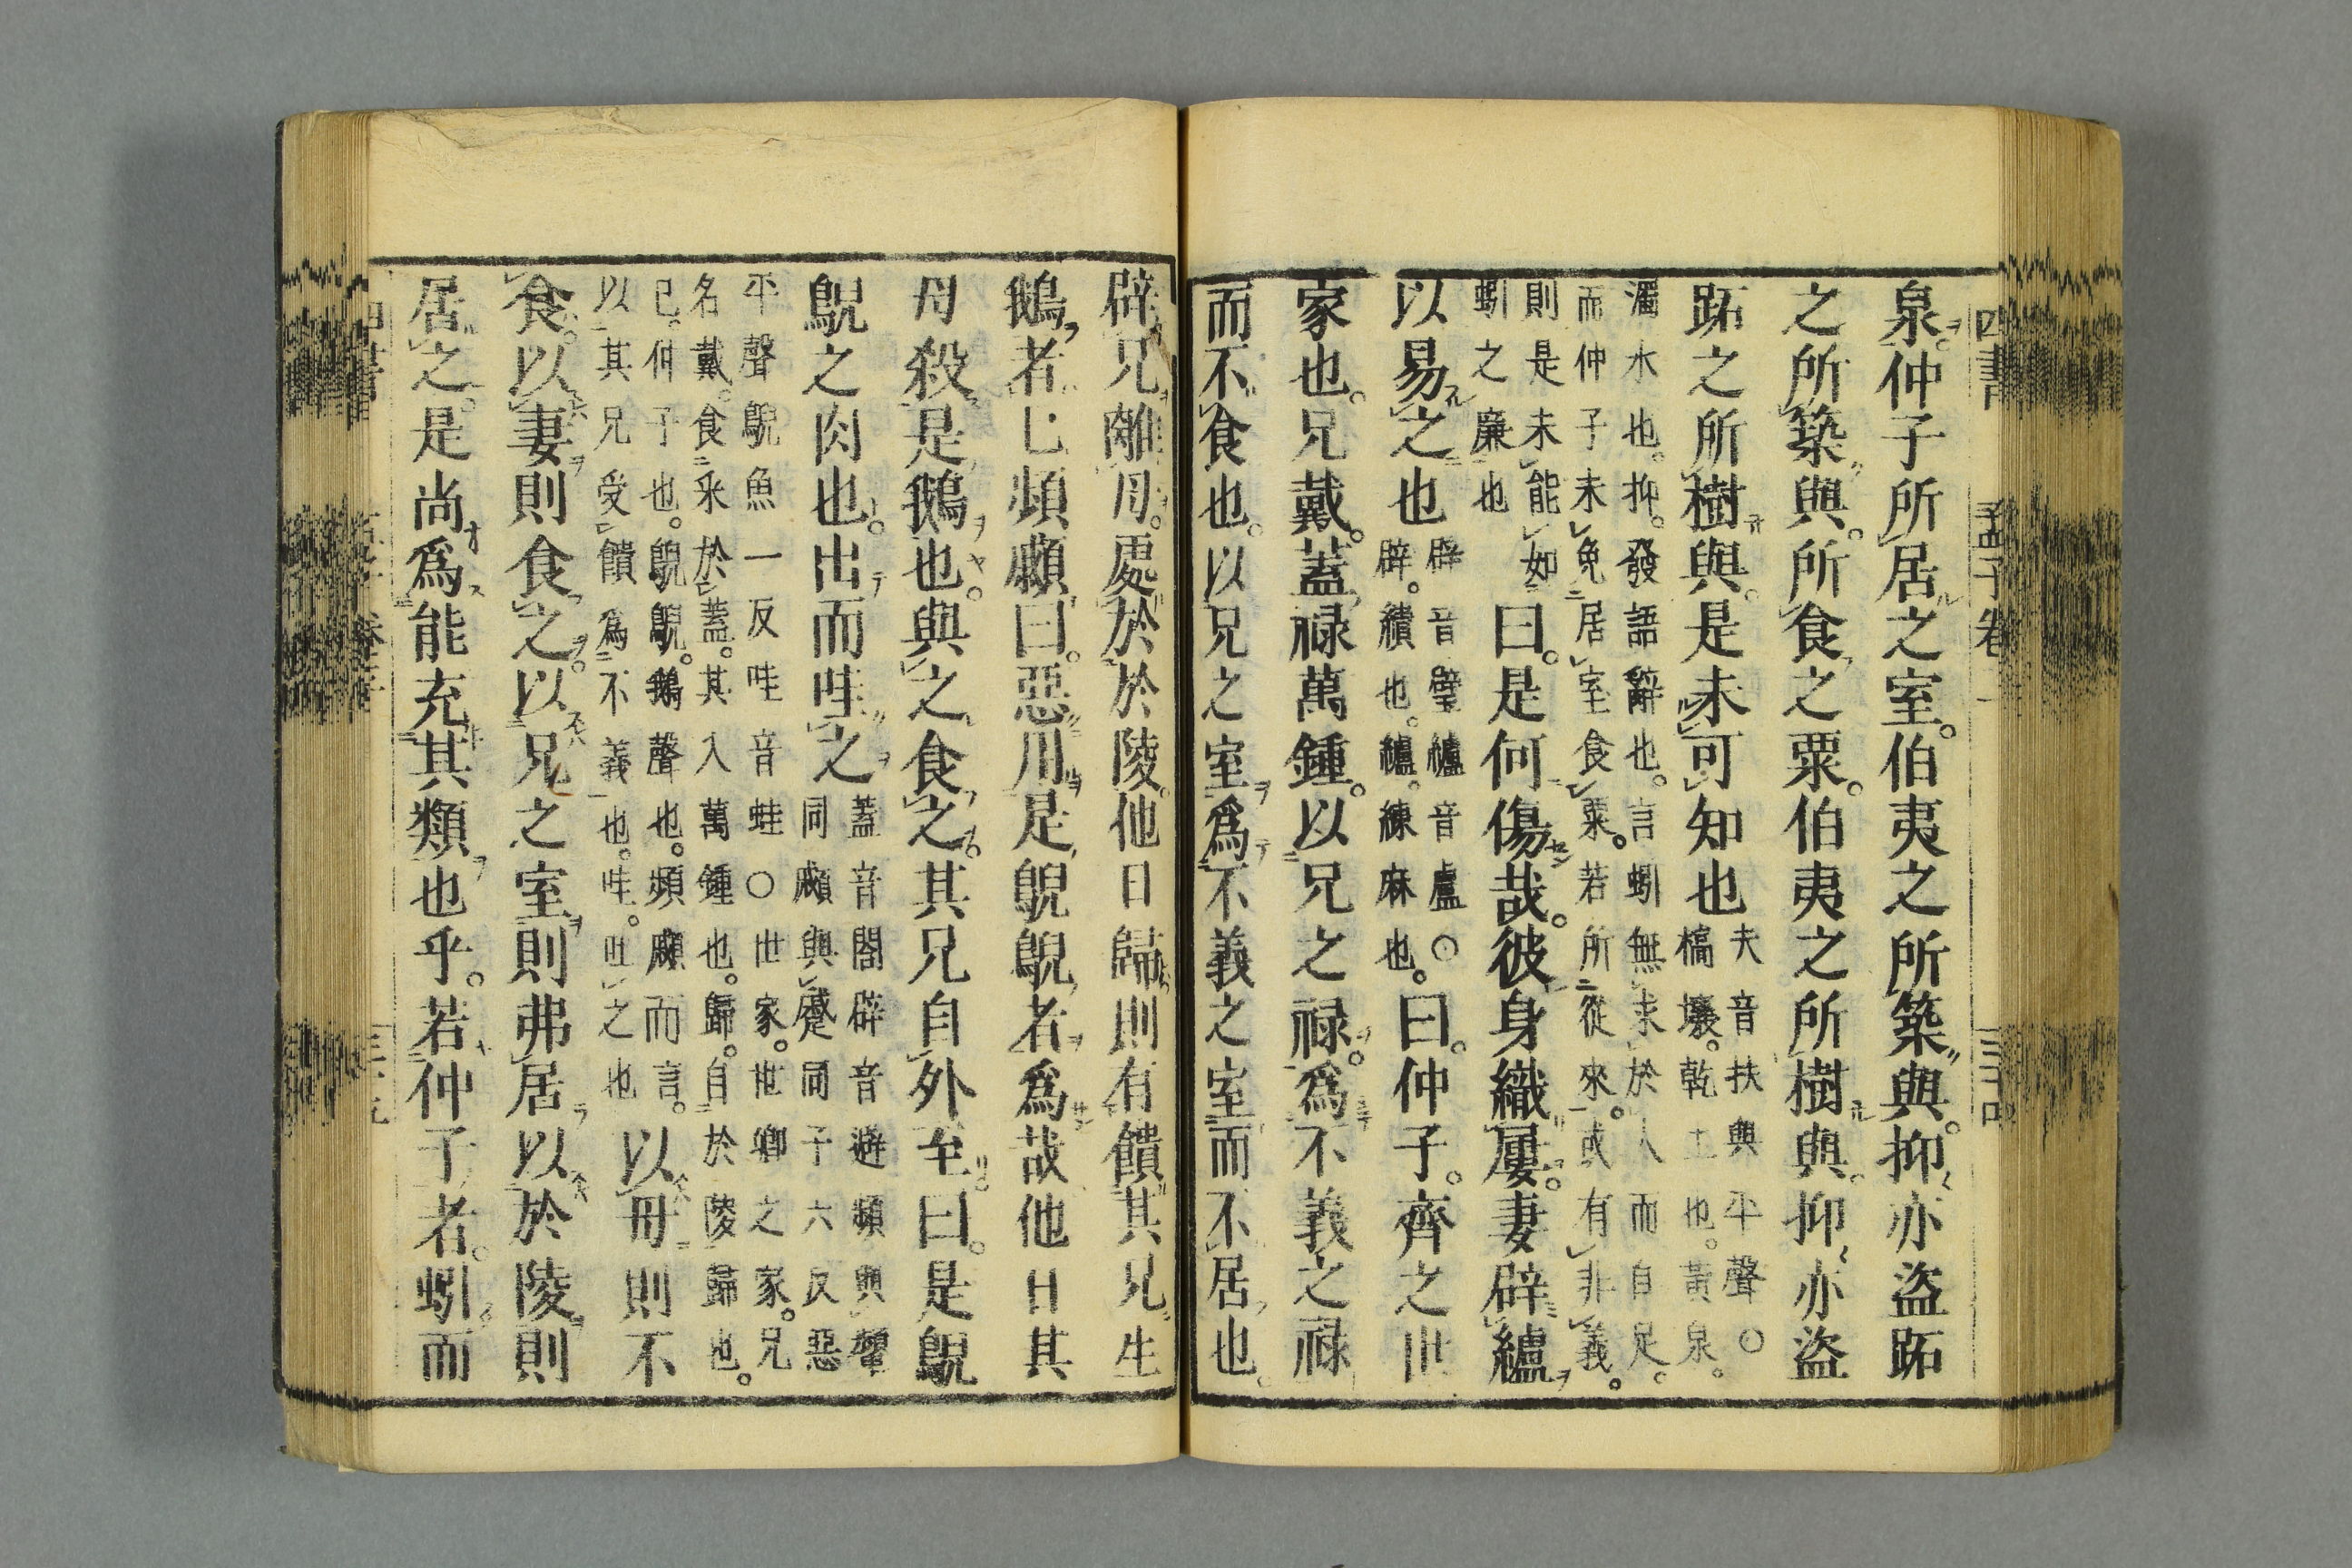 四書 孟子卷
泉。仲子所居之室。伯夷之所築與。抑亦盜跖
之所築與。所食之粟。伯夷之所樹與。抑亦盜
跖之所樹與。是未可知也
夫音扶與平聲○
槁壤。乾土也。黃泉。
濁水也。抑。發語辭也。言蚓無求於人而自足。
而仲子未免居室食粟。若所從來。或有非義。
則是未能如
蚓之廉也
曰。是何傷哉。彼身織屨。妻辟纑
以易之也
辟音璧纑音盧○
辟。績也。纑。練麻也。
曰。仲子。齊之世
家也。兄戴。蓋祿萬鍾。以兄之祿。爲不義之祿
而不食也。以兄之室。爲不義之室而不居也。
辟兄離母。處於於陵。他日歸。則有饋其兄生
鵝者。己頻顣曰。惡用是鶃鶃者爲哉。他日其
母殺是鵝也。與之食之。其兄自外至。曰。是鶃
鶃之肉也。出而哇之
蓋音閤辟音避頻與顰
同顣與蹙同子六反惡
平聲鶃魚一反哇音蛙○世家。世卿之家。兄
名戴。食采於蓋。其入萬鍾也。歸。自於陵歸也。
己。仲子也。鶃鶃。鵝聲也。頻顣而言。
以其兄受饋爲不義也。哇。吐之也
以母則不
食。以妻則食之。以兄之室則弗居。以於陵則
居之。是尚爲能充其類也乎。若仲子者。蚓而